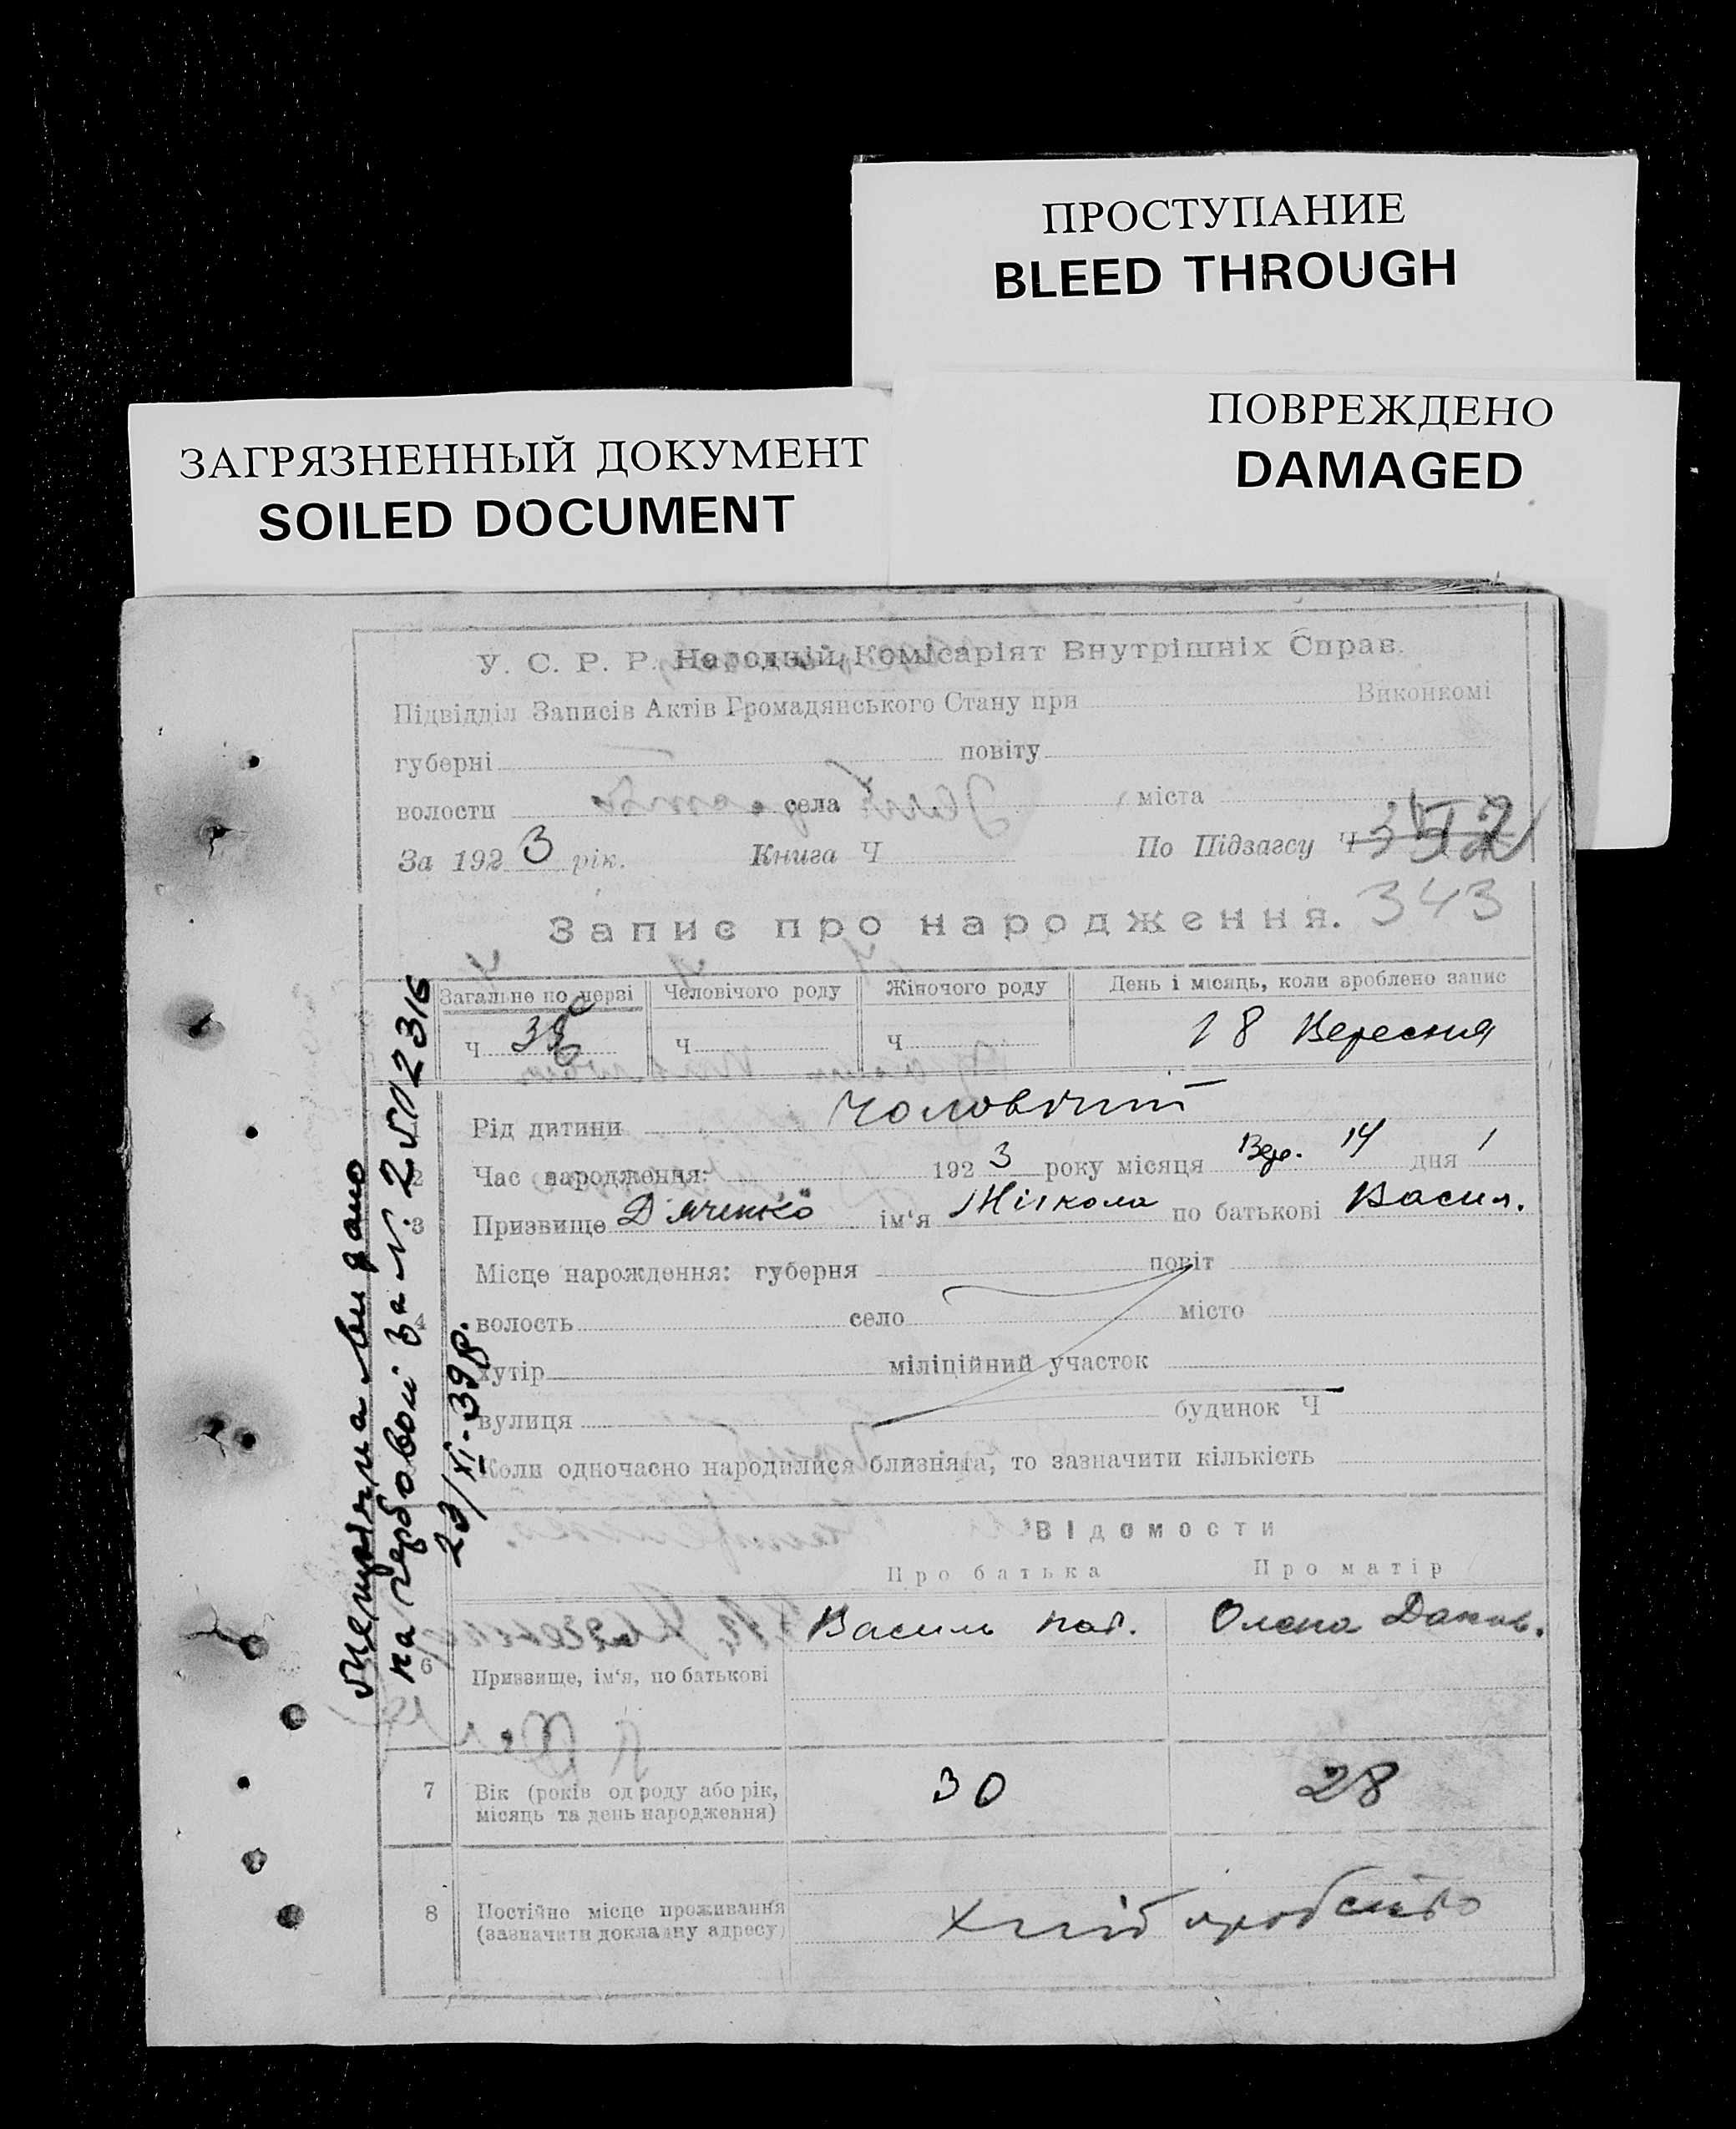 ПРОСТУПАНИЕ
BLEED THROUGH
ПОВРЕЖДЕНО
DAMAGED
ЗАГРЯЗНЕННЫЙ ДОКУМЕНТ
SOILED DOCUMENT
У. С. Р. Р. Народній Комісаріят Внутрішніх Справ.
Підвідділ Записів Актів Громадянського Стану при Виконкомі
губерні повіту
волости села міста
За 1923 рік. Книга Ч По Підзагсу Ч 352
Запис про народження. 343
Загальне по черзі Человічого роду Жіночого роду День і місяць, коли зроблено запис
Ч Ч Ч 18 Вересня
Рід дитини Чоловічий
2 Час народження: 1923 року місяця Вер. 14 дня 1
3 Призвище Д'яченко ім'я Мікола по батькові Васил.
Місце нарождення: губерня повіт
4 волость село місто
хутір міліційний участок
вулиця будинок Ч
Коли одночасно народилися близнята, то зазначити кількість
Відомости
Про батька Про матір
Василь Пав. Олена Данил.
6 Призвище, ім'я, по батькові
7 Вік (років од роду або рік, 30 28
місяць та день народження)
8 Постійне місце проживання хліборобство
(зазначити докладну адресу)
метрична видано
на гербовой за № 2502316
23/XI-39р.